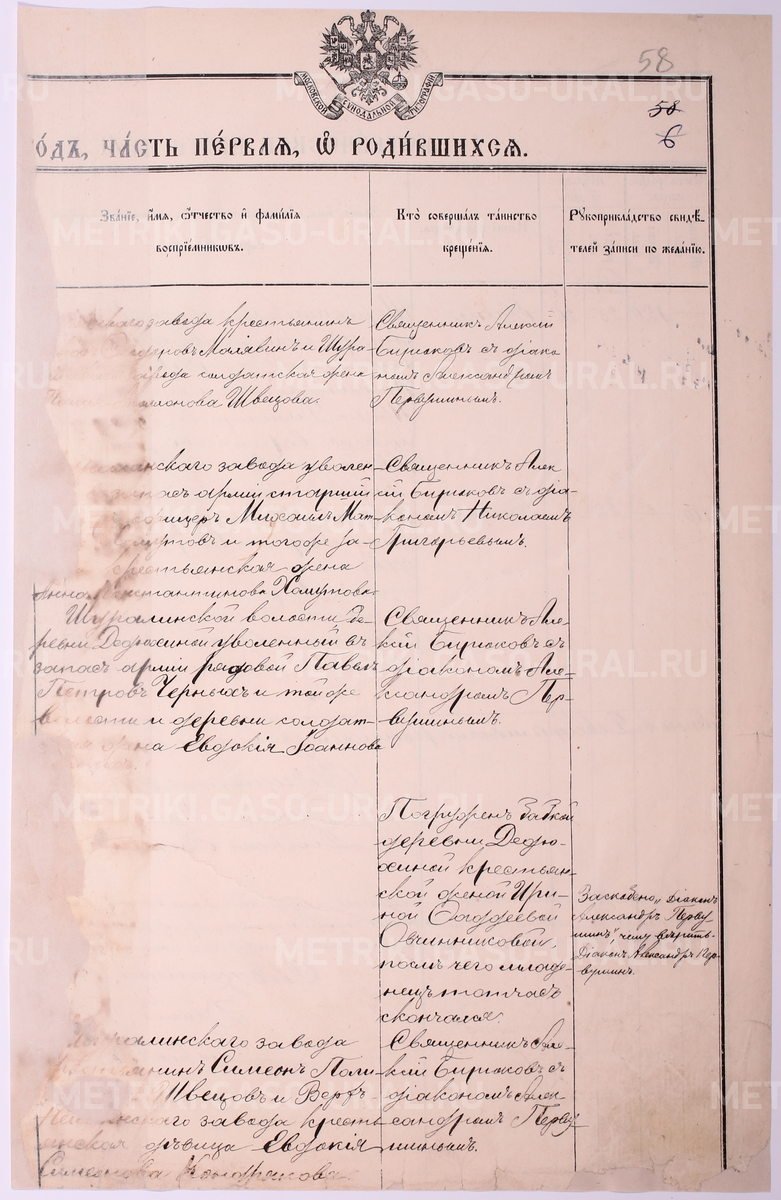 58
58
6
МОСКОВСКОЙ СѴНОДАЛЬНОЙ ТИПОГРАФІИ
ОДЪ, ЧАСТЬ ПЕРВАЯ, Ѿ РОДИВШИХСЯ.
Званіе, имя, отчество и фамилія
воспріемниковъ.
Кто совершалъ таинство
крещенія.
Рукоприкладство свидѣ-
телей записи по желанію.
завода крестьянинъ
Малявинъ и Шура-
завода солдатская жена
Швецова.
Священникъ Алексій
Бирюковъ съ діако
номъ Александромъ
Первушинымъ.
скаго завода уволен-
арміи старшій
Михаилъ Мат-
и того же за-
крестьянская жена
Анна Константинова Хомутова
Священникъ Алек
сій Бирюковъ съ діа-
кономъ Николаемъ
Григорьевымъ.
Шуралинской волости де-
ревни Дедюхиной уволенный въ
запасъ арміи рядовой Павелъ
Петровъ Черныхъ и той же
волости и деревни солдат-
жена Евдокія Іоаннова
Священникъ Але-
ксій Бирюковъ съ
діакономъ Але-
ксандромъ Пер-
вушинымъ.
Погруженъ бабкой
деревни Дедю-
хиной крестьян-
ской женой Ири-
ной Фаддеевой
Овчинниковой,
послѣ чего младе-
нецъ тотчасъ
скончался.
Заскоблено „Діаконъ
Александръ Перву
шинъ", чему вѣрить.
Діаконъ Александръ Пер-
вушинъ.
Шуралинскаго завода
крестьянинъ Симеонъ Поли
Швецовъ и Верхъ-
Нейвинскаго завода кресть
янская дѣвица Евдокія
Симеонова Кондрякова.
Священникъ Але-
ксій Бирюковъ съ
діакономъ Алек
сандромъ Перву
шинымъ.
METRIKI.GASO-URAL.RU